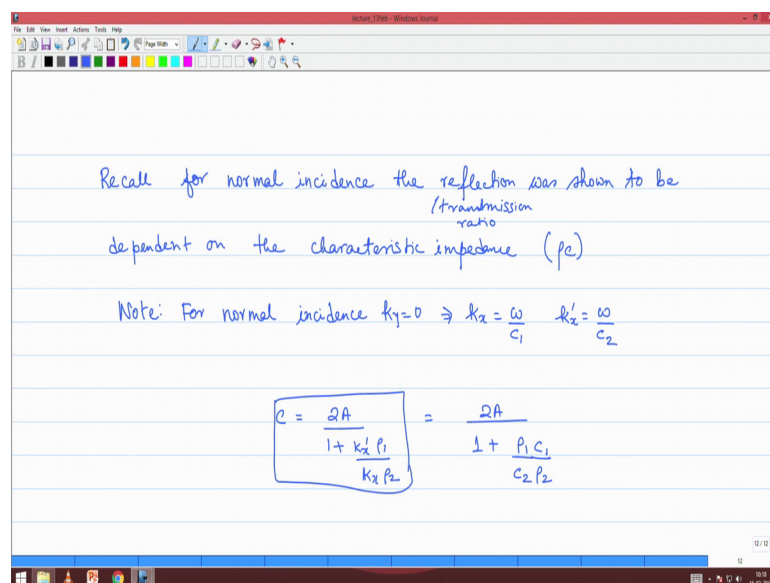 lecture_13feb - Windows Journal
File Edit View Insert Actions Tools Help
Page Width
B I
Recall for normal incidence the reflection was shown to be
/transmission
ratio
dependent on the characteristic impedance (ρc)
Note: For normal incidence ky=0 ⇒ kx = ω/c1 kx' = ω/c2
C = 2A / (1 + kx' ρ1 / kx ρ2) = 2A / (1 + ρ1 c1 / c2 ρ2)
12 / 12
12
10:18